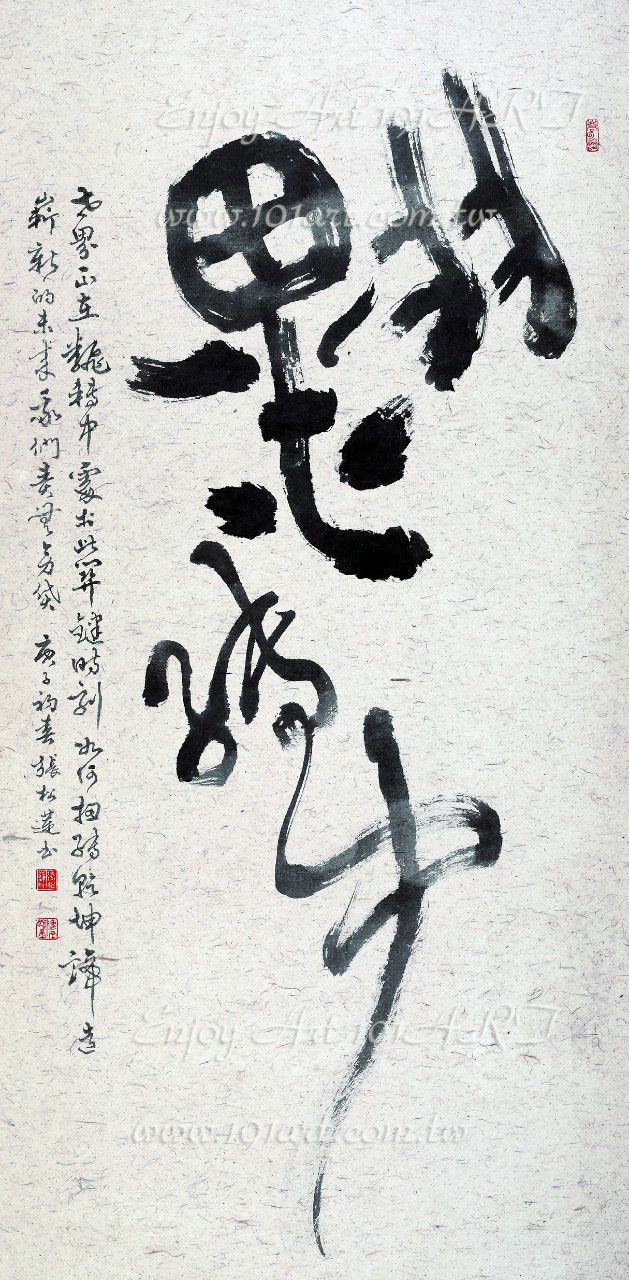 Enjoy Art 101ART
www.101art.com.tw
翻轉中
世界正在飜轉中處於此關鍵時刻如何扭轉乾坤締造
嶄新的未來我們責無旁貸 庚子初春張松蓮書
Enjoy Art 101ART
www.101art.com.tw